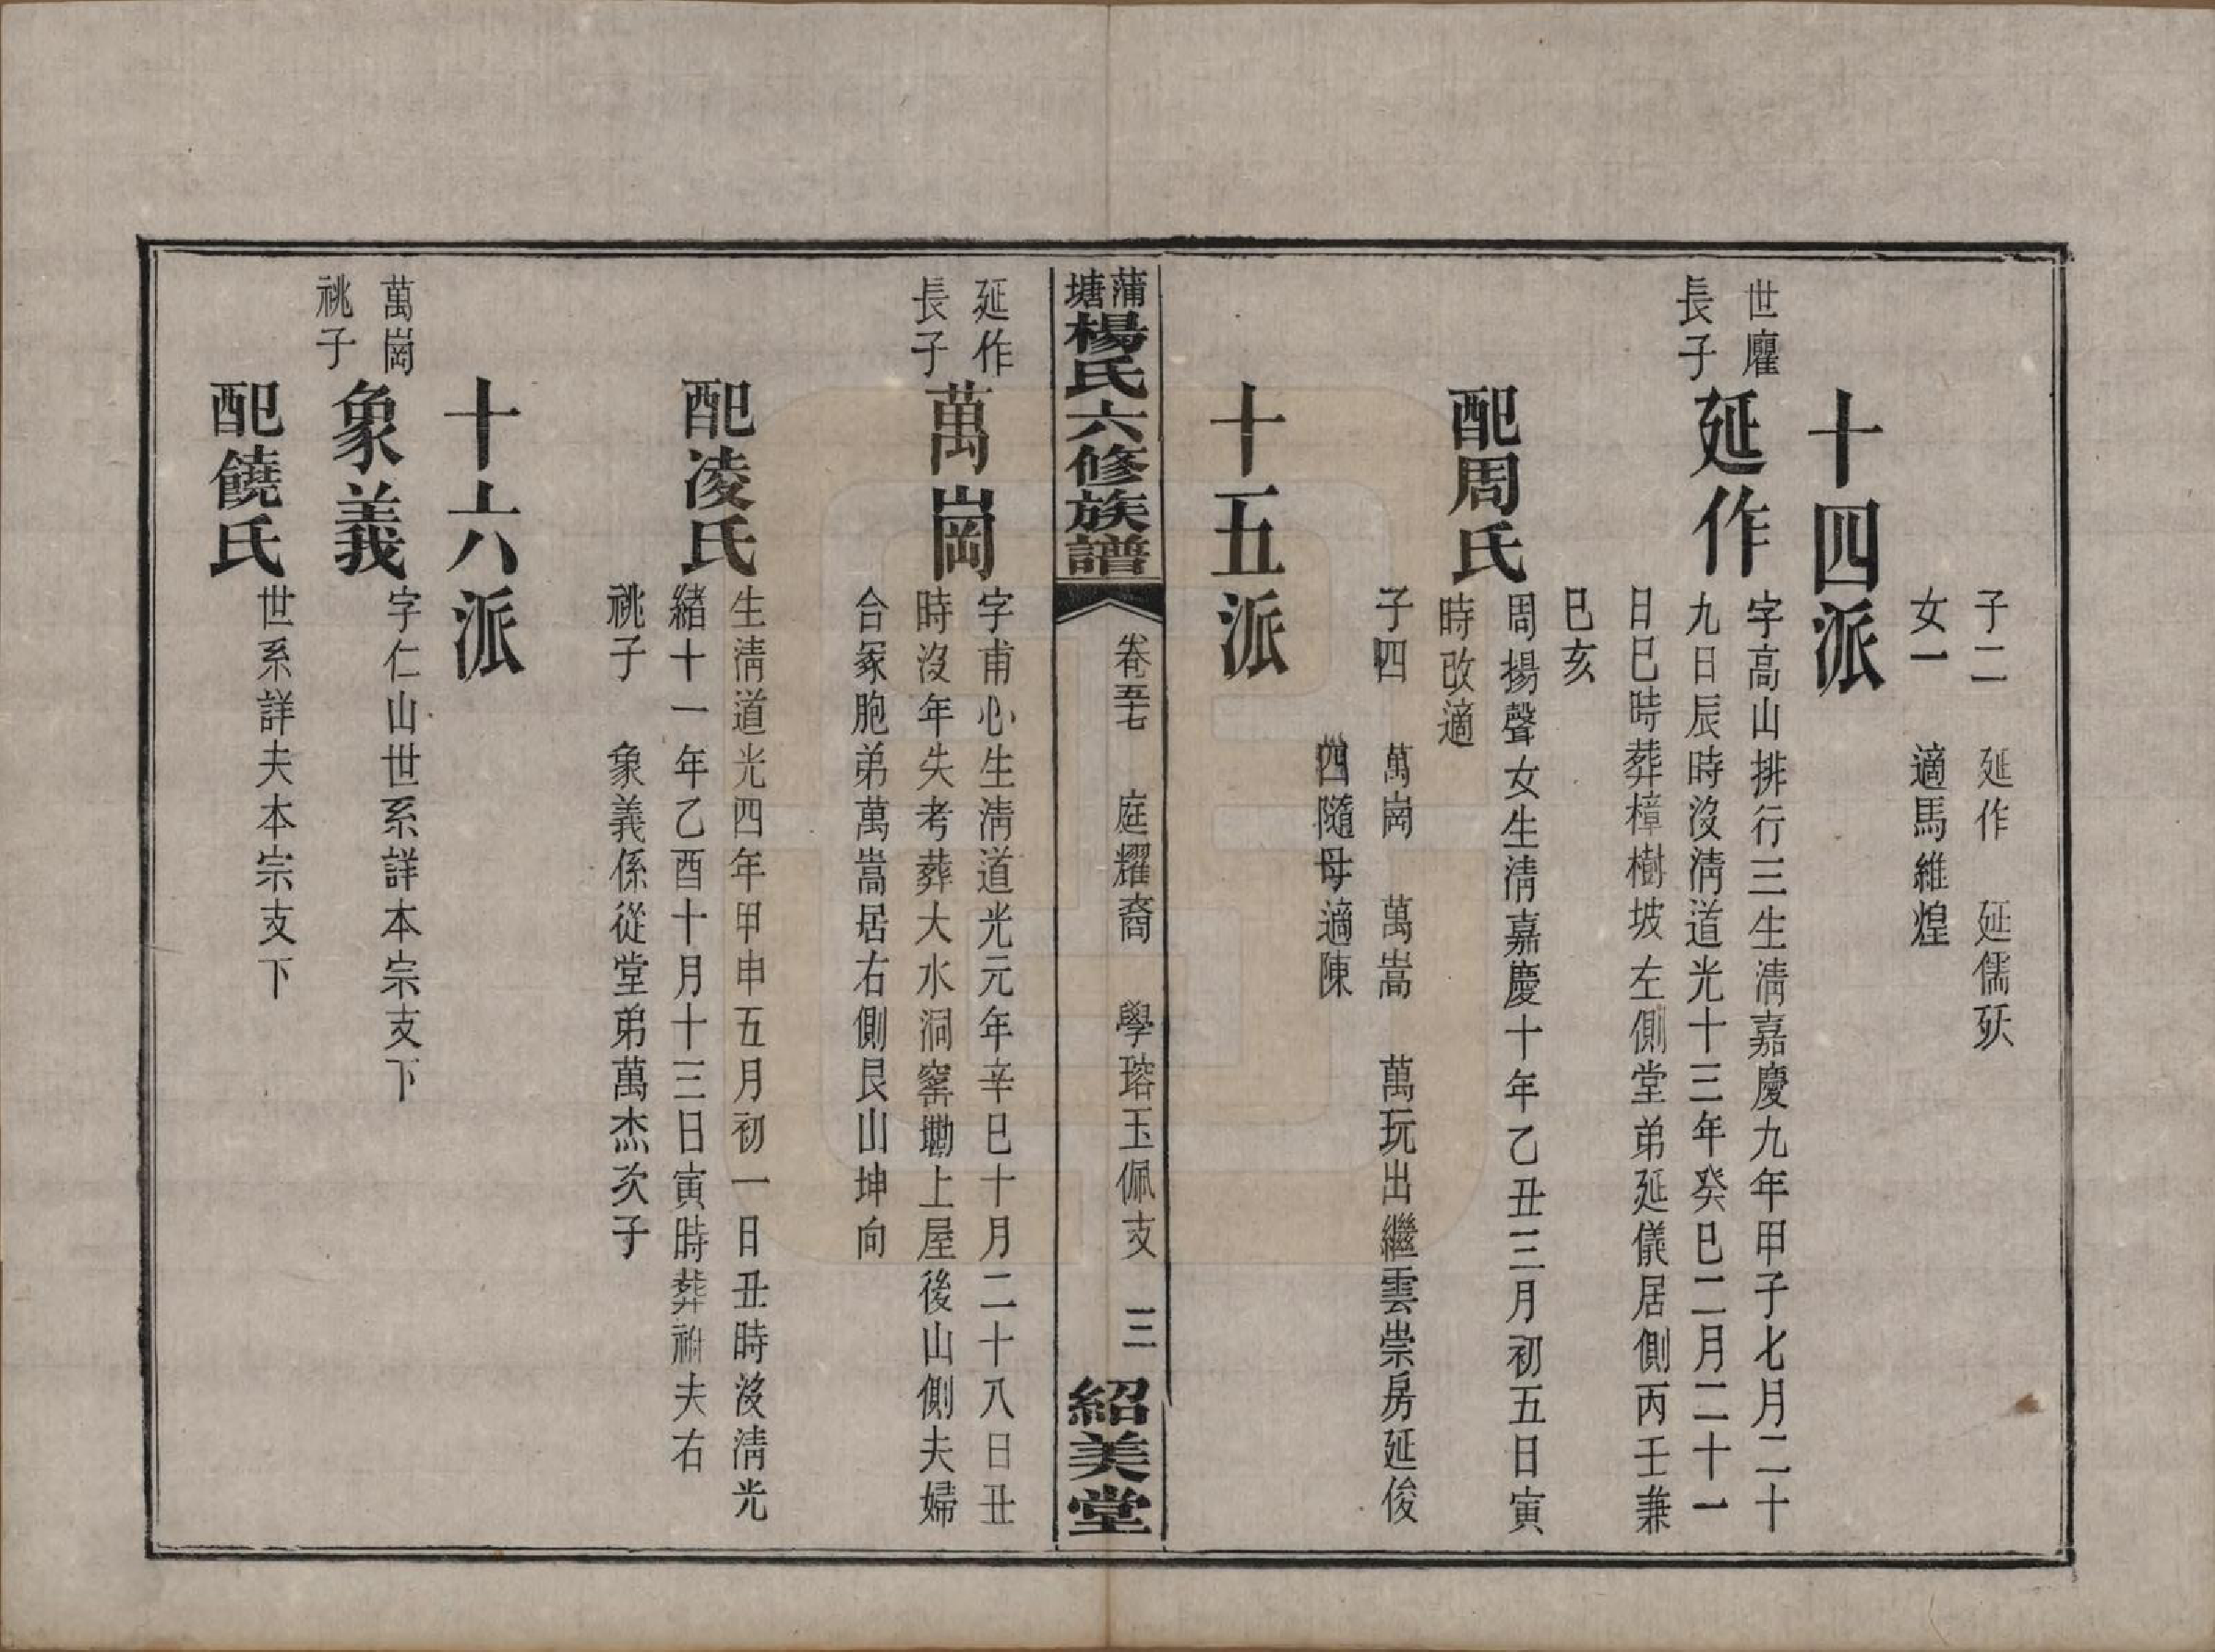 子二　延作　延儒殀
女一　適馬維煌
十四派
世廲
長子
延作
字高山排行三生淸嘉慶九年甲子七月二十
九日辰時沒淸道光十三年癸巳二月二十一
日巳時葬樟樹坡左側堂弟延儀居側丙壬兼
巳亥
配周氏
周揚聲女生淸嘉慶十年乙丑三月初五日寅
時改適
子四　萬崗　萬嵩　萬玩出繼雲崇房延俊
四隨母適陳
十五派
蒲塘楊氏六修族譜
卷五七　庭耀裔　學瑢玉佩支　三
紹美堂
延作
長子
萬崗
字甫心生淸道光元年辛巳十月二十八日丑
時沒年失考葬大水洞窰墈上屋後山側夫婦
合冢胞弟萬嵩居右側艮山坤向
配凌氏
生淸道光四年甲申五月初一日丑時沒淸光
緒十一年乙酉十月十三日寅時葬祔夫右
祧子　象義係從堂弟萬杰次子
十六派
萬崗
祧子
象義
字仁山世系詳本宗支下
配饒氏
世系詳夫本宗支下